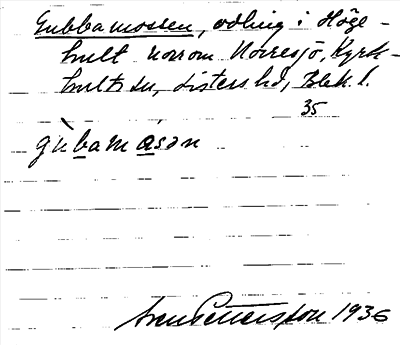 Gubbamossen, odling i Höge-
hult norrom Norresjö, Kyrk-
hults sn, Listers hd, Blek. l.
35
gùbamå̀sən
Sven Pettersson 1936